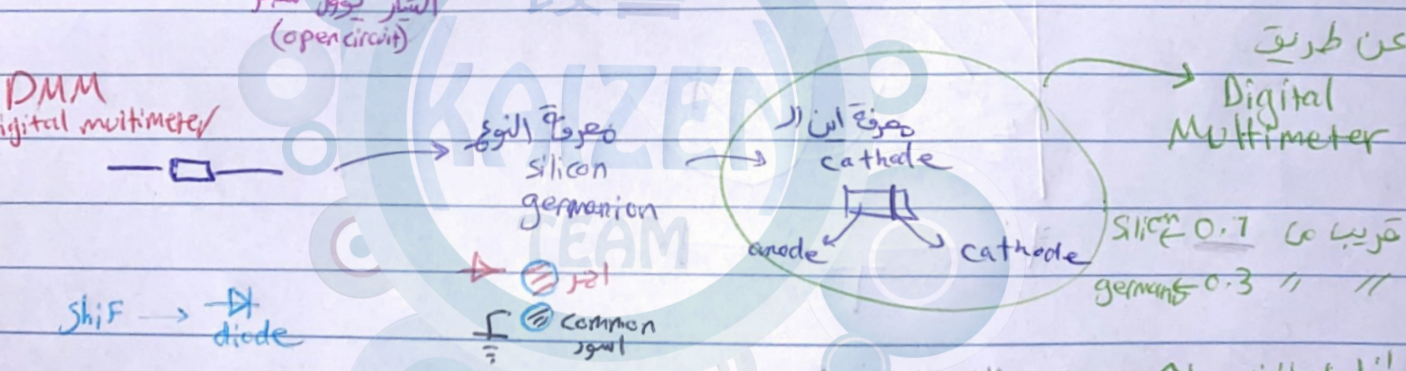 (open circuit)
DMM
igital multimeter
معرفة النوع
silicon
germanion
معرفة اين ال
cathode
anode
cathode
عن طريق
Digital
Multimeter
قريب من 0.7
0.3 " "
احمر
common
اسود
Shif → diode
KAIZEN
TEAM